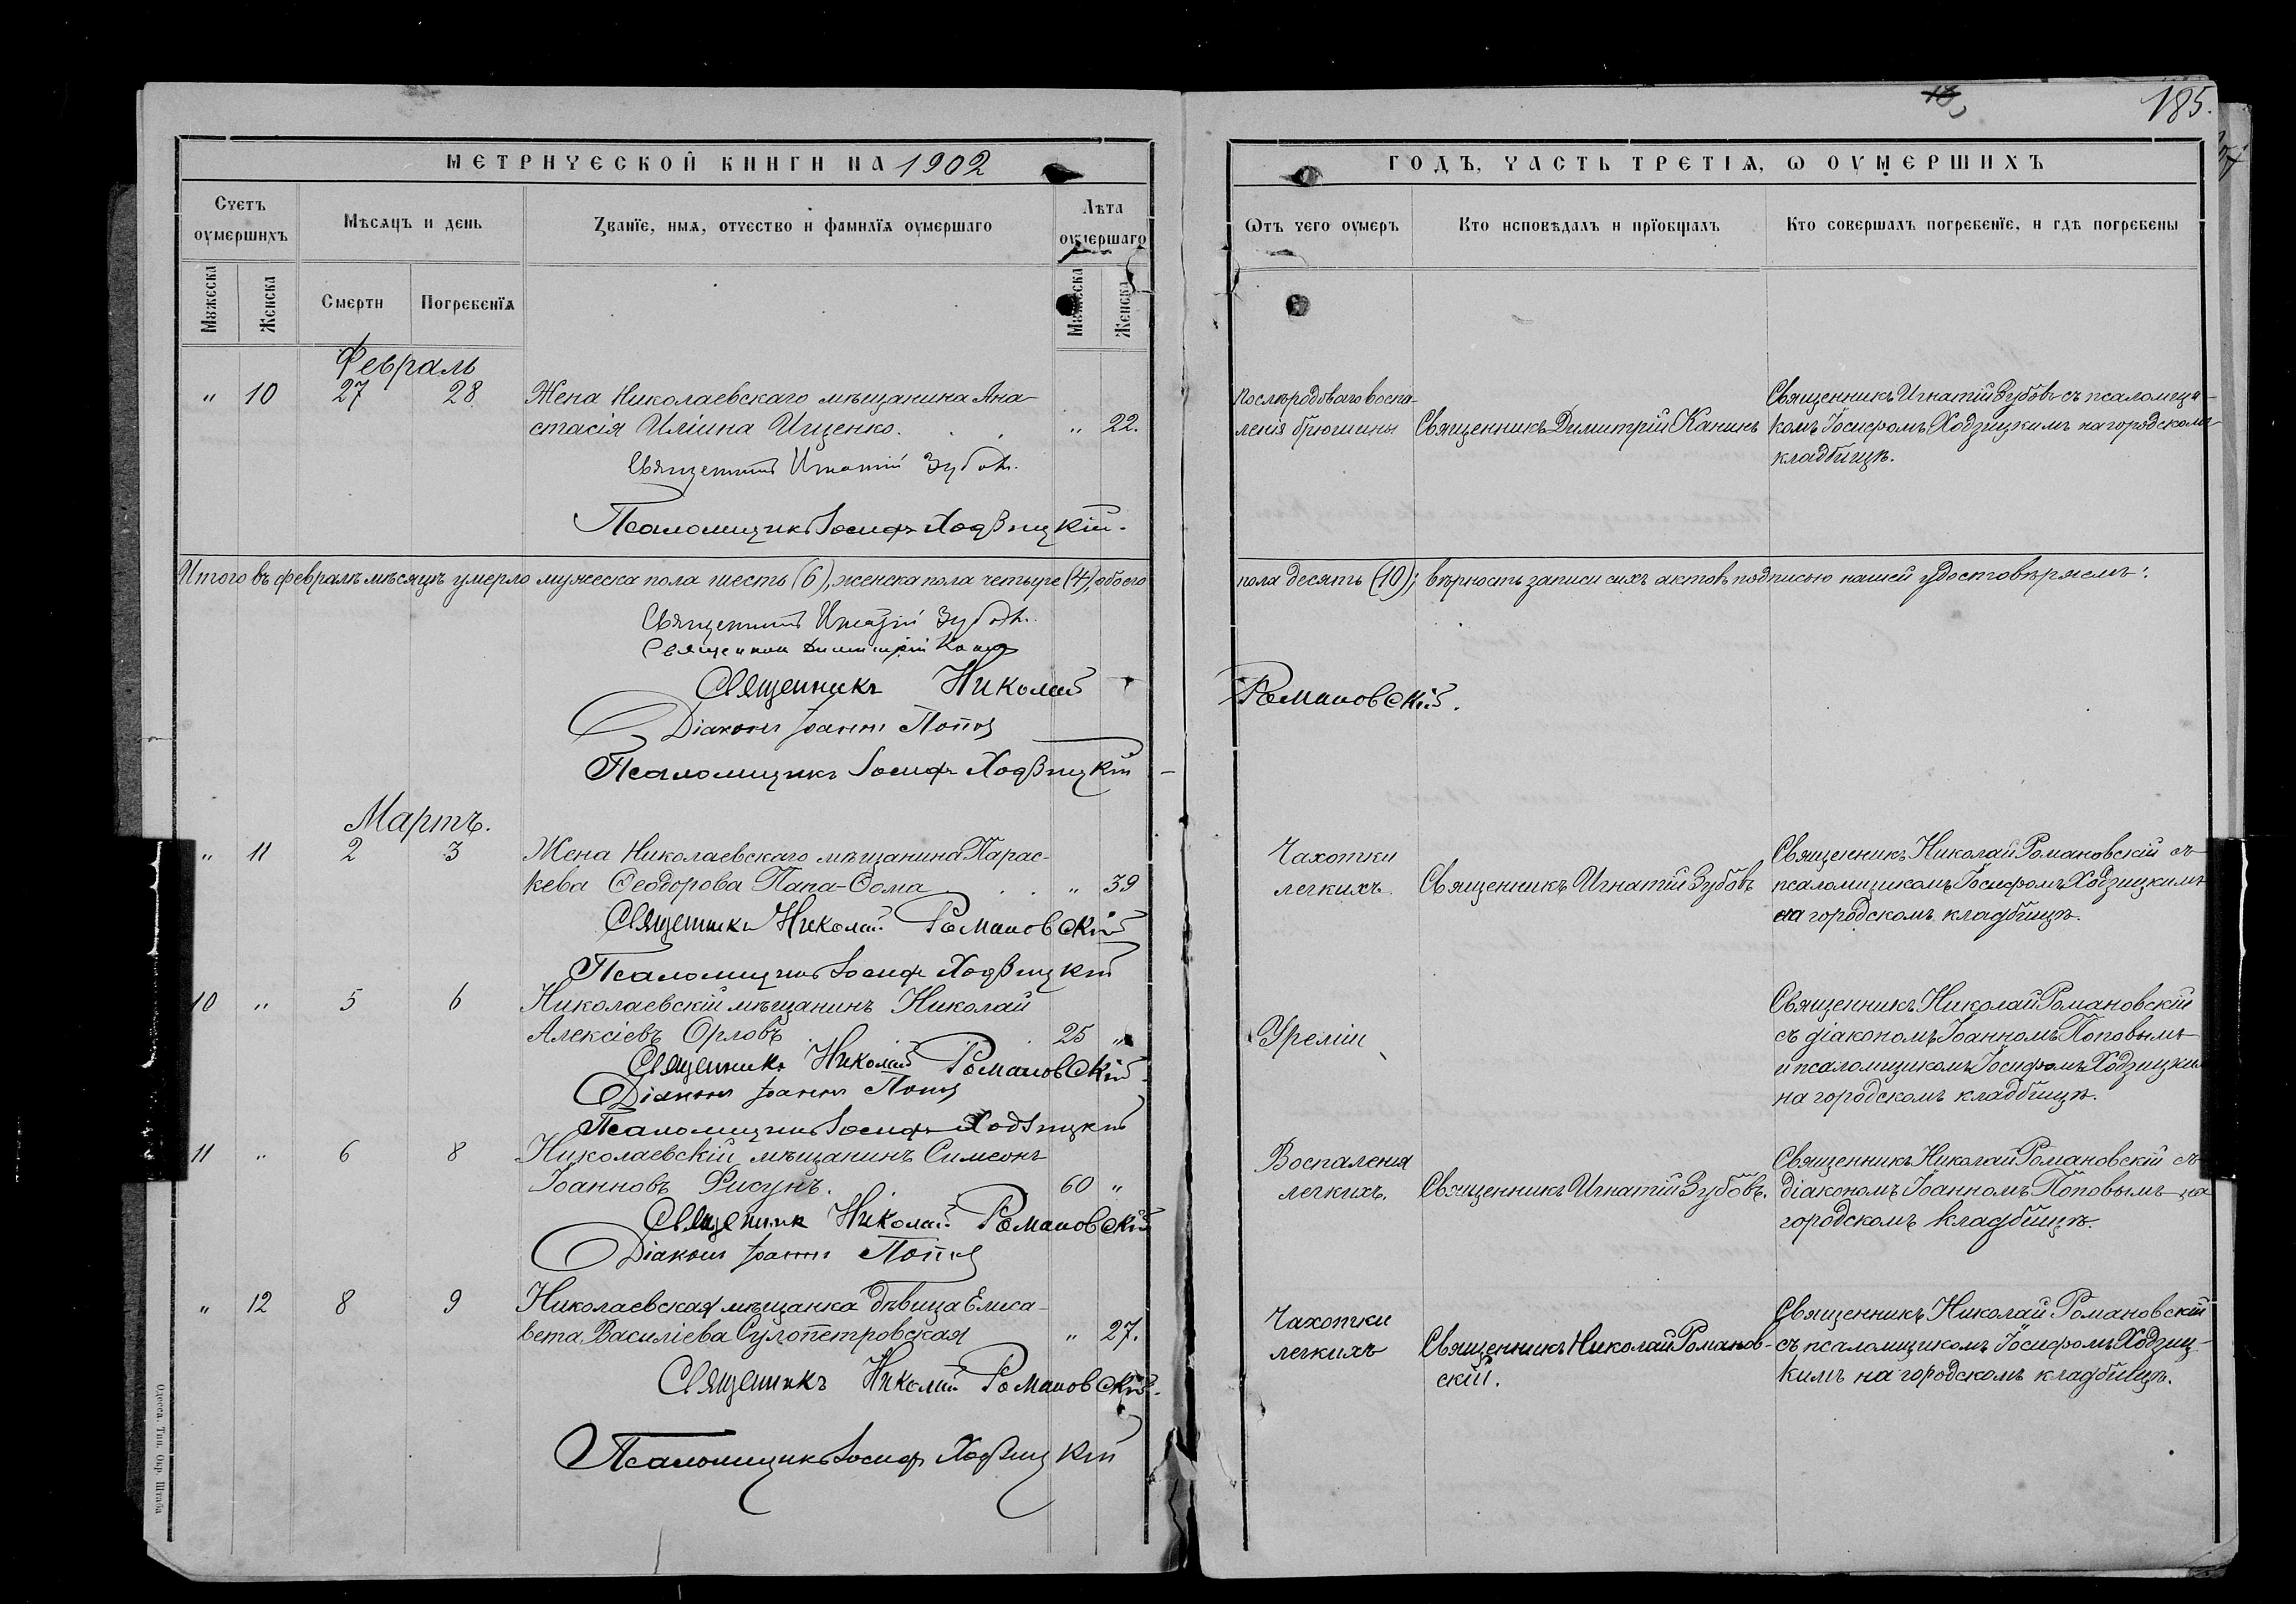 185.
МЕТРИЧЕСКОЙ КНИГИ НА 1902
ГОДЪ, ЧАСТЬ ТРЕТІѦ, Ѡ ОУМЕРШИХЪ
Счетъ оумершихъ
Мѣсяцъ и день
Званїе, имѧ, отчество и фамилїѧ оумершаго
Лѣта оумершаго
Ѿтъ чего оумеръ
Кто исповѣдалъ и прїобщалъ
Кто совершалъ погребенїе, и гдѣ погребены
Мꙋжеска
Женска
Смерти
Погребенїѧ
Мꙋжеска
Женска
Февраль
„ 10 27 28 Жена Николаевскаго мѣщанина Ана-
стасія Иліина Ищенко. „ 22.
Послѣродоваго воспа-
ленія брюшины
Священникъ Димитрій Канинъ
Священникъ Игнатій Зубовъ съ псаломщи-
комъ Іосифомъ Ходзицкимъ на городскомъ
кладбищѣ.
Священникъ Игнатій Зубовъ.
Псаломщикъ Іосифъ Ходзицкій.
Итого въ февралѣ мѣсяцѣ умерло мужеска пола шесть (6), женска пола четыре (4), обоего
пола десять (10); вѣрность записи сихъ актовъ подписью нашей удостовѣряемъ:
Священникъ Игнатій Зубовъ.
Священникъ Димитрій Канинъ
Священникъ Николай Романовскій.
Діаконъ Іоаннъ Поповъ
Псаломщикъ Іосифъ Ходзицкій
Мартъ.
„ 11 2 3 Жена Николаевскаго мѣщанина Парас-
кева Ѳеодорова Папа-Ѳома „ 39
Чахотки
легкихъ.
Священникъ Игнатій Зубовъ
Священникъ Николай Романовскій съ
псаломщикомъ Іосифомъ Ходзицкимъ
на городскомъ кладбищѣ.
Священникъ Николай Романовскій
Псаломщикъ Іосифъ Ходзицкій
10 „ 5 6 Николаевскій мѣщанинъ Николай
Алексіевъ Орловъ 25 „
Уреміи
Священникъ Николай Романовскій
съ діакономъ Іоанномъ Поповымъ
и псаломщикомъ Іосифомъ Ходзицким
на городскомъ кладбищѣ.
Священникъ Николай Романовскій
Діаконъ Іоаннъ Поповъ
Псаломщикъ Іосифъ Ходзицкій
11 „ 6 8 Николаевскій мѣщанинъ Симеонъ
Іоанновъ Рисунъ. 60 „
Воспаленія
легкихъ.
Священникъ Игнатій Зубовъ.
Священникъ Николай Романовскій съ
діакономъ Іоанномъ Поповымъ на
городскомъ кладбищѣ.
Священникъ Николай Романовскій
Діаконъ Іоаннъ Поповъ
„ 12 8 9 Николаевская мѣщанка дѣвица Елиса-
вета Василіева Сулопетровская „ 27.
Чахотки
легкихъ
Священникъ Николай Романов-
скій.
Священникъ Николай Романовскій
съ псаломщикомъ Іосифомъ Ходзиц-
кимъ на городскомъ кладбищѣ.
Священникъ Николай Романовскій.
Псаломщикъ Іосифъ Ходзицкій
Одесса. Тип. Окр. Штаба